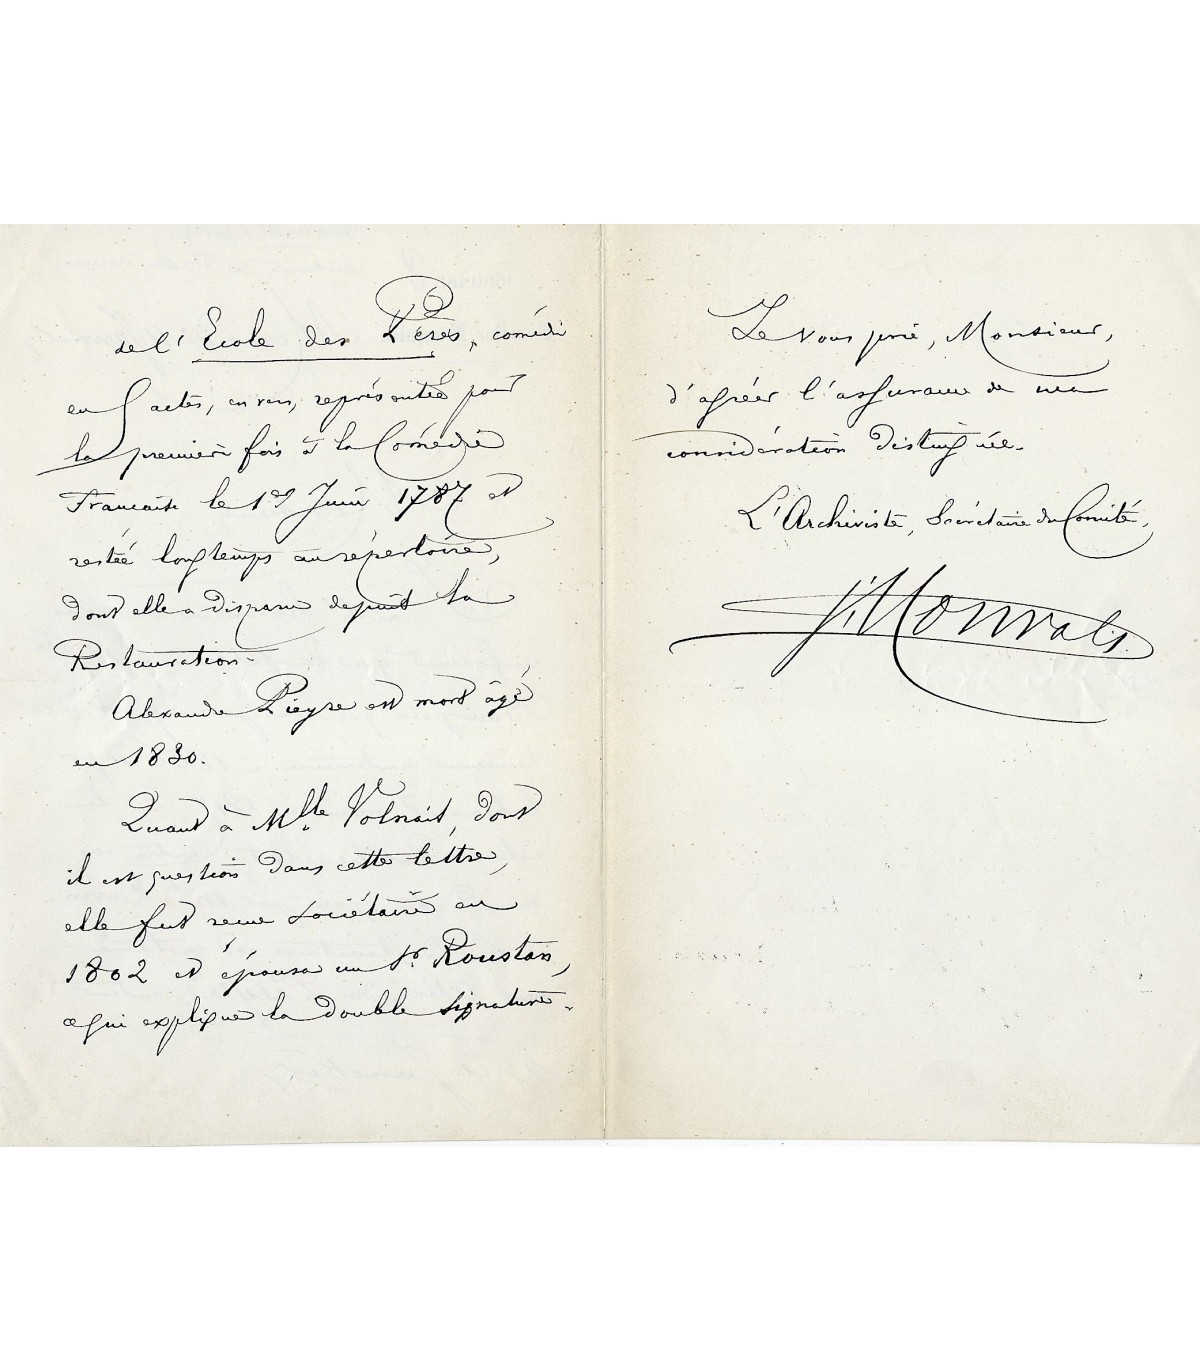 de l'Ecole des Pères, comédie
en 5 actes, en vers, représentée pour
la première fois à la Comédie
Française le 1er Juin 1787 et
restée longtemps au répertoire,
dont elle a disparu depuis la
Restauration.
Alexandre Pieyre est mort âgé
en 1830.
Quant à Mlle Volnais, dont
il est question dans cette lettre,
elle fut reçue sociétaire en
1802 et épousa un Sr Roustan,
ce qui explique la double signature.
Je vous prie, Monsieur,
d'agréer l'assurance de ma
considération distinguée.
L'Archiviste, Secrétaire du Comité,
G. Monval